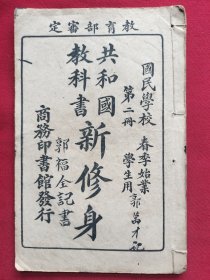 教育部審定
國民學校
春季始業
學生用
第二冊
郭萬才記
共和國
教科書
新修身
郭福全記書
商務印書館發行